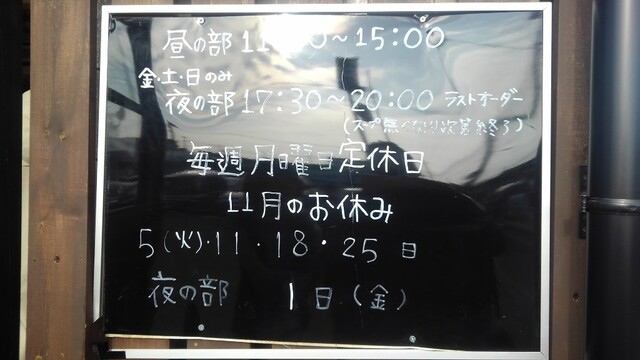 昼の部 11:30～15:00
金・土・日のみ
夜の部 17:30～20:00 ラストオーダー
(スープ無くなり次第終了)
毎週月曜日定休日
11月のお休み
5(火)・11・18・25日
夜の部 1日(金)